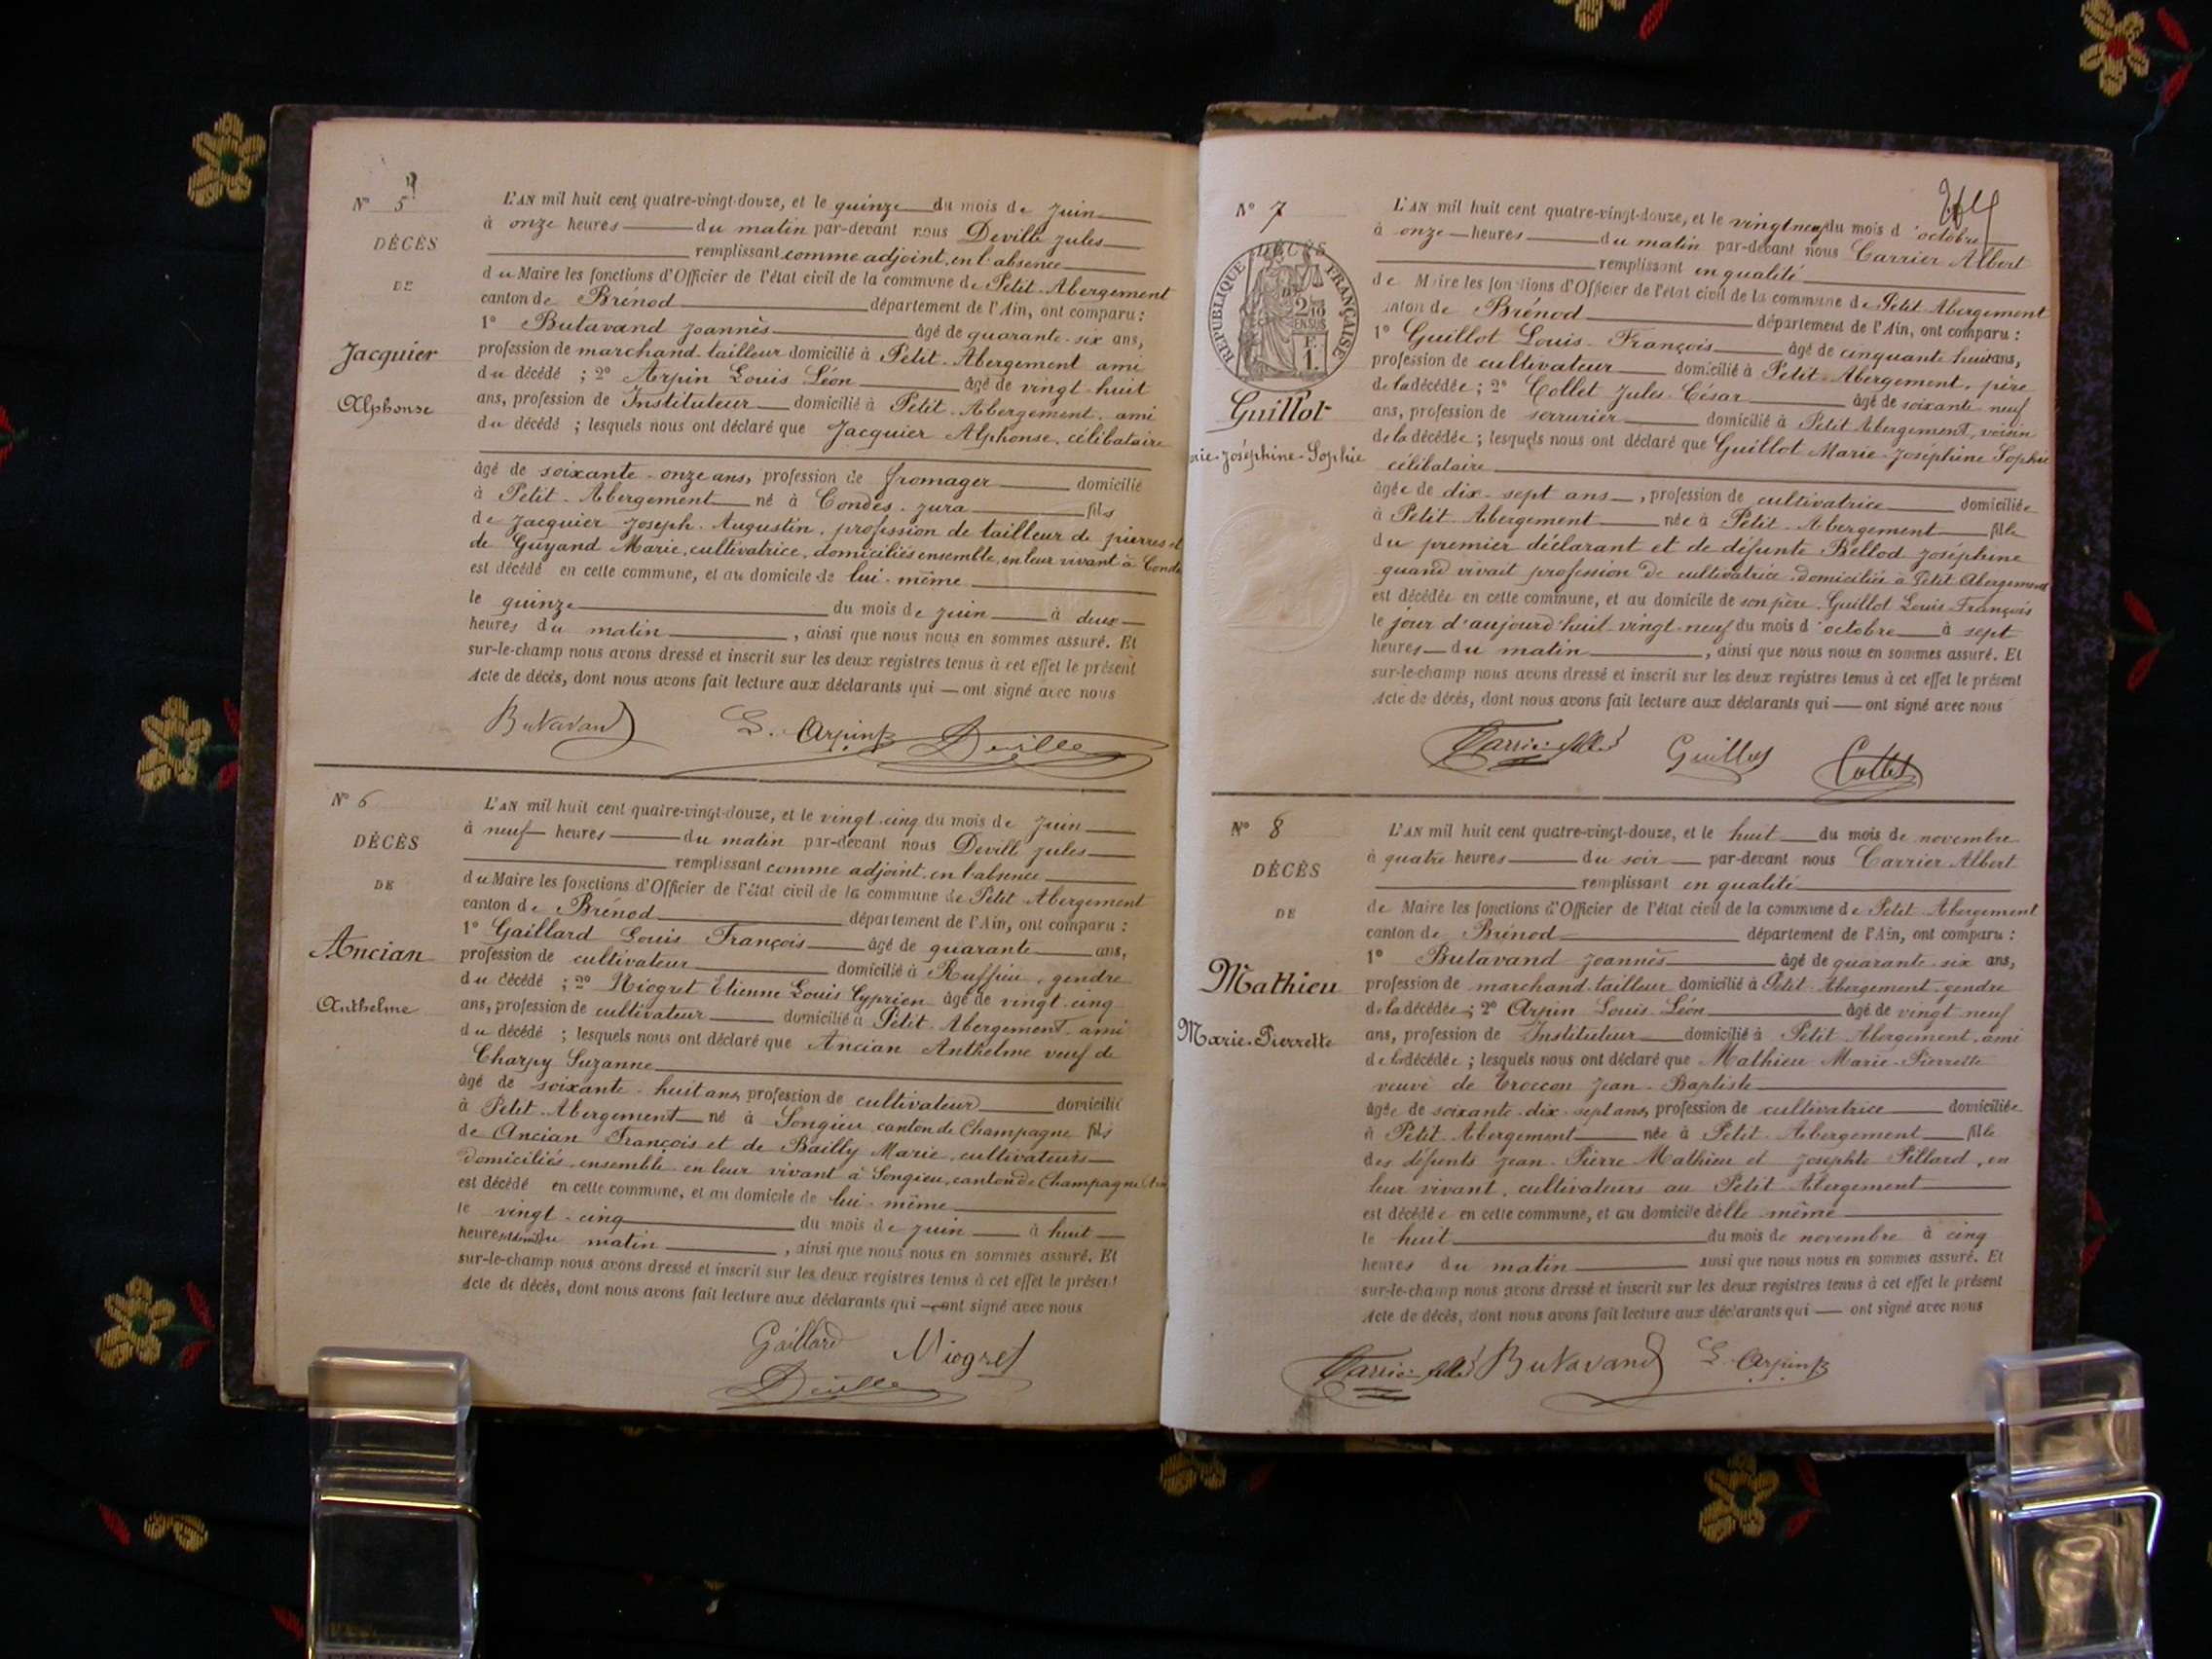 N° 5
DÉCÈS
DE
Jacquier
Alphonse
L'AN mil huit cent quatre-vingt-douze, et le quinze du mois de juin
à onze heures du matin par-devant nous Deville Jules
remplissant comme adjoint, en l'absence
du Maire les fonctions d'Officier de l'état civil de la commune de Petit-Abergement
canton de Brénod département de l'Ain, ont comparu :
1° Butavand Joannès âgé de quarante-six ans,
profession de marchand tailleur domicilié à Petit-Abergement ami
du décédé ; 2° Arpin Louis Léon âgé de vingt-huit
ans, profession de Instituteur domicilié à Petit-Abergement, ami
du décédé ; lesquels nous ont déclaré que Jacquier Alphonse, célibataire
âgé de soixante-onze ans, profession de fromager domicilié
à Petit-Abergement né à Condes, Jura fils
de Jacquier Joseph-Augustin, profession de tailleur de pierres et
de Guyand Marie, cultivatrice, domiciliés ensemble, en leur vivant à Condes
est décédé en cette commune, et au domicile de lui-même
le quinze du mois de juin à deux
heures du matin, ainsi que nous nous en sommes assuré. Et
sur-le-champ nous avons dressé et inscrit sur les deux registres tenus à cet effet le présent
Acte de décès, dont nous avons fait lecture aux déclarants qui ont signé avec nous
Butavand L. Arpin Deville
N° 6
DÉCÈS
DE
Ancian
Anthelme
L'AN mil huit cent quatre-vingt-douze, et le vingt-cinq du mois de juin
à neuf heures du matin par-devant nous Deville Jules
remplissant comme adjoint, en l'absence
du Maire les fonctions d'Officier de l'état civil de la commune de Petit-Abergement
canton de Brénod département de l'Ain, ont comparu :
1° Gaillard Louis François âgé de quarante ans,
profession de cultivateur domicilié à Ruffieu, gendre
du décédé ; 2° Niogret Etienne Louis Cyprien âgé de vingt-cinq
ans, profession de cultivateur domicilié à Petit-Abergement ami
du décédé ; lesquels nous ont déclaré que Ancian Anthelme veuf de
Charpy Suzanne
âgé de soixante-huit ans, profession de cultivateur domicilié
à Petit-Abergement né à Songieu, canton de Champagne fils
de Ancian François et de Bailly Marie, cultivateurs
domiciliés ensemble en leur vivant à Songieu, canton de Champagne (Ain)
est décédé en cette commune, et au domicile de lui-même
le vingt-cinq du mois de juin à huit
heures du matin, ainsi que nous nous en sommes assuré. Et
sur-le-champ nous avons dressé et inscrit sur les deux registres tenus à cet effet le présent
Acte de décès, dont nous avons fait lecture aux déclarants qui ont signé avec nous
Gaillard Niogret
Deville
N° 7
DÉCÈS
DE
RÉPUBLIQUE FRANÇAISE
2/10 EN SUS
F. 1.
Guillot
rie-Joséphine-Sophie
L'AN mil huit cent quatre-vingt-douze, et le vingt neuf du mois d'octobre
à onze heures du matin par-devant nous Carrier Albert
remplissant en qualité
de Maire les fonctions d'Officier de l'état civil de la commune de Petit Abergement
canton de Brénod département de l'Ain, ont comparu :
1° Guillot Louis-François âgé de cinquante huit ans,
profession de cultivateur domicilié à Petit-Abergement, père
de la décédée ; 2° Collet Jules-César âgé de soixante-neuf
ans, profession de serrurier domicilié à Petit Abergement, voisin
de la décédée ; lesquels nous ont déclaré que Guillot Marie-Joséphine Sophie
célibataire
âgée de dix-sept ans, profession de cultivatrice domiciliée
à Petit-Abergement née à Petit-Abergement fille
du premier déclarant et de défunte Bellod Joséphine
quand vivait profession de cultivatrice domiciliée à Petit Abergement
est décédée en cette commune, et au domicile de son père, Guillot Louis-François
le jour d'aujourd'huit vingt-neuf du mois d'octobre à sept
heures du matin, ainsi que nous nous en sommes assuré. Et
sur-le-champ nous avons dressé et inscrit sur les deux registres tenus à cet effet le présent
Acte de décès, dont nous avons fait lecture aux déclarants qui ont signé avec nous
Carrier Albert Guillot Collet
N° 8
DÉCÈS
DE
Mathieu
Marie-Pierrette
L'AN mil huit cent quatre-vingt-douze, et le huit du mois de novembre
à quatre heures du soir par-devant nous Carrier Albert
remplissant en qualité
de Maire les fonctions d'Officier de l'état civil de la commune de Petit-Abergement
canton de Brénod département de l'Ain, ont comparu :
1° Butavand Joannès âgé de quarante-six ans,
profession de marchand-tailleur domicilié à Petit-Abergement, gendre
de la décédée ; 2° Arpin Louis-Léon âgé de vingt-neuf
ans, profession de Instituteur domicilié à Petit-Abergement, ami
de la décédée ; lesquels nous ont déclaré que Mathieu Marie-Pierrette
veuve de Troccon Jean-Baptiste
âgée de soixante-dix-sept ans, profession de cultivatrice domiciliée
à Petit-Abergement née à Petit-Abergement fille
des défunts Jean-Pierre Mathieu et Josephte Pillard, en
leur vivant, cultivateurs au Petit-Abergement
est décédée en cette commune, et au domicile d'elle-même
le huit du mois de novembre à cinq
heures du matin ainsi que nous nous en sommes assuré. Et
sur-le-champ nous avons dressé et inscrit sur les deux registres tenus à cet effet le présent
Acte de décès, dont nous avons fait lecture aux déclarants qui ont signé avec nous
Carrier Albert Butavand L. Arpin